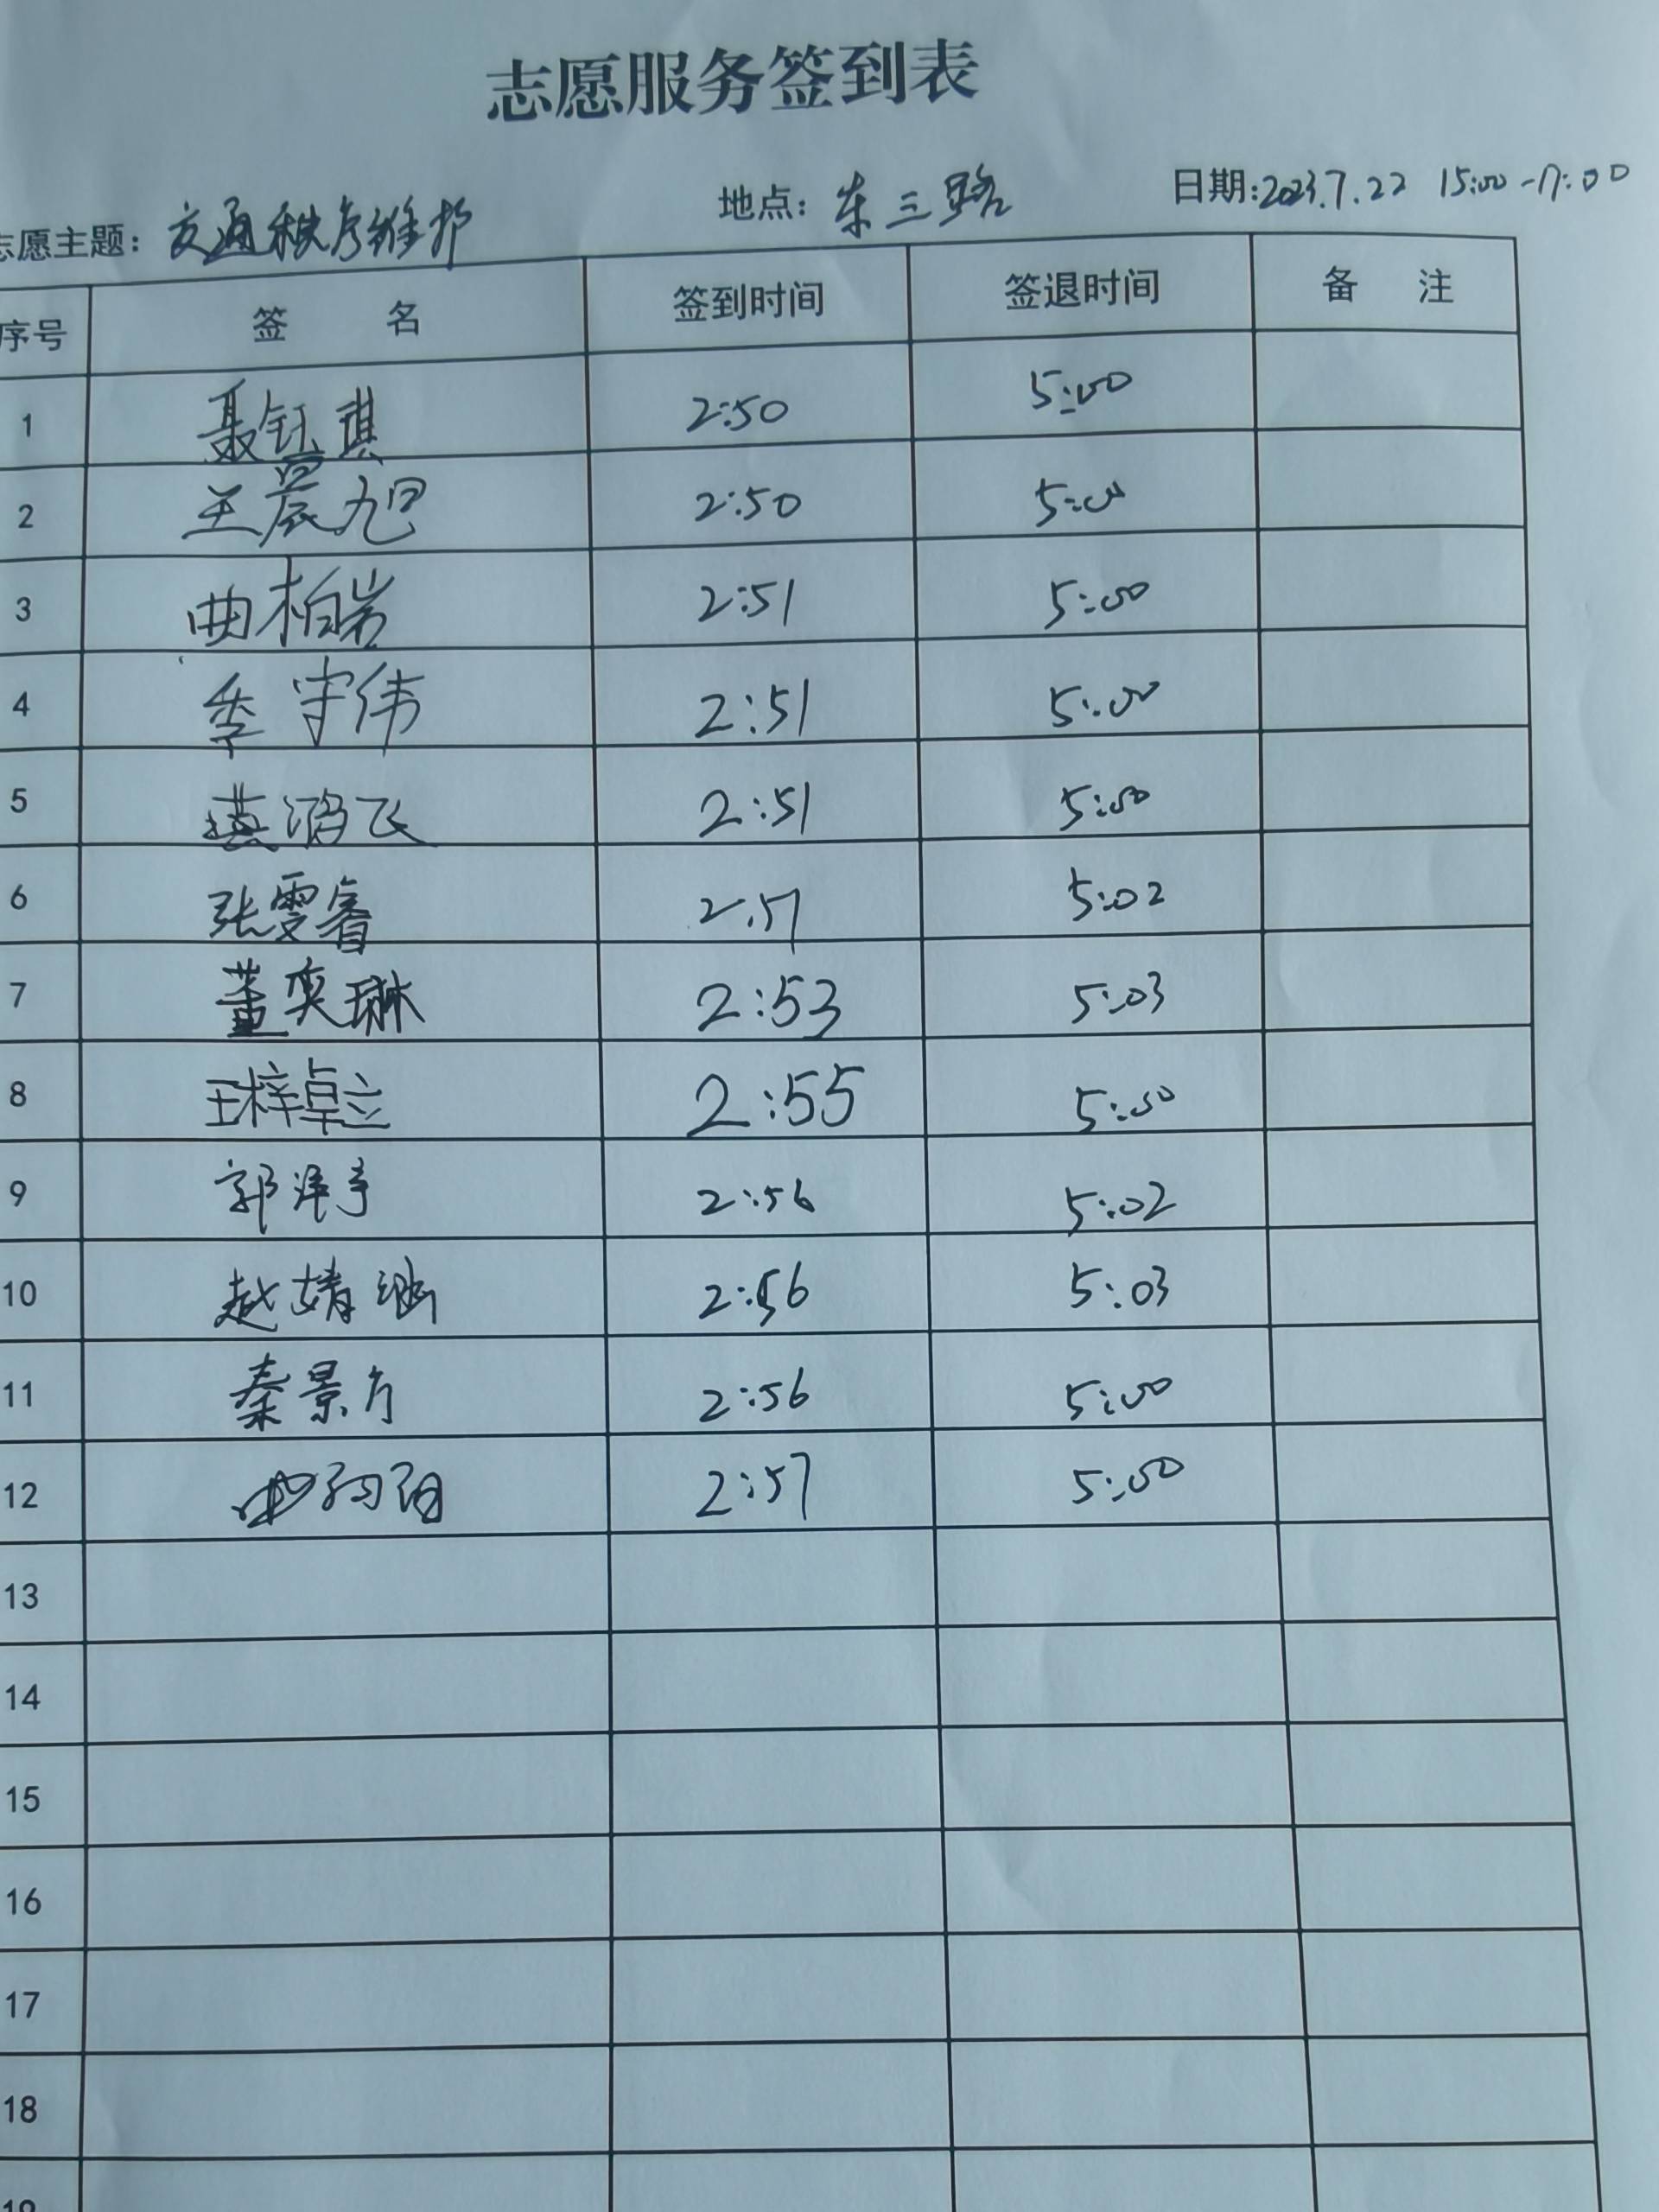 志愿服务签到表
志愿主题：交通秩序维护 地点：东三路 日期：2023.7.22 15:00-17:00
序号 签 名 签到时间 签退时间 备 注
1 聂钰琪 2:50 5:00
2 王晨旭 2:50 5:00
3 曲柏岩 2:51 5:00
4 季宇伟 2:51 5:00
5 鸿飞 2:51 5:00
6 张雯睿 2:51 5:02
7 董奕琳 2:53 5:03
8 王梓卓立 2:55 5:00
9 郭泽宇 2:56 5:02
10 赵婧涵 2:56 5:03
11 秦景 2:56 5:00
12 2:57 5:00
13
14
15
16
17
18
19